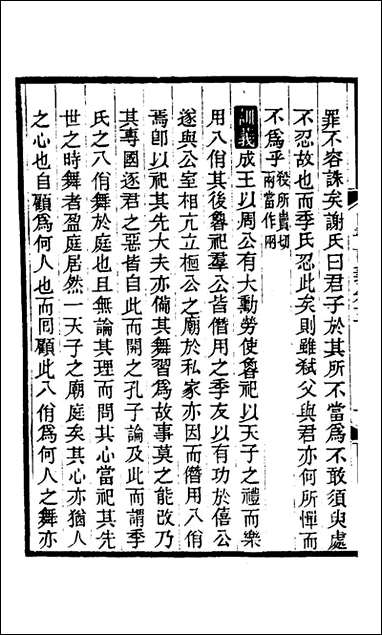 罪不容誅矣謝氏曰君子於其所不當爲不敢須臾處
不忍故也而季氏忍此矣則雖弒父與君亦何所憚而
不爲乎
從所責切
兩當作㒳
訓義成王以周公有大勳勞使魯祀以天子之禮而樂
用八佾其後魯祀羣公皆僭用之季友以有功於僖公
遂與公室相亢立桓公之廟於私家亦因而僭用八佾
焉卽以祀其先大夫亦備其舞習爲故事莫之能改乃
其專國逐君之惡皆自此而開之孔子論及此而謂季
氏之八佾舞於庭也且無論其理而問其心當祀其先
世之時舞者盈庭居然一天子之廟庭矣其心亦猶人
之心也自顧爲何人也而回顧此八佾爲何人之舞亦